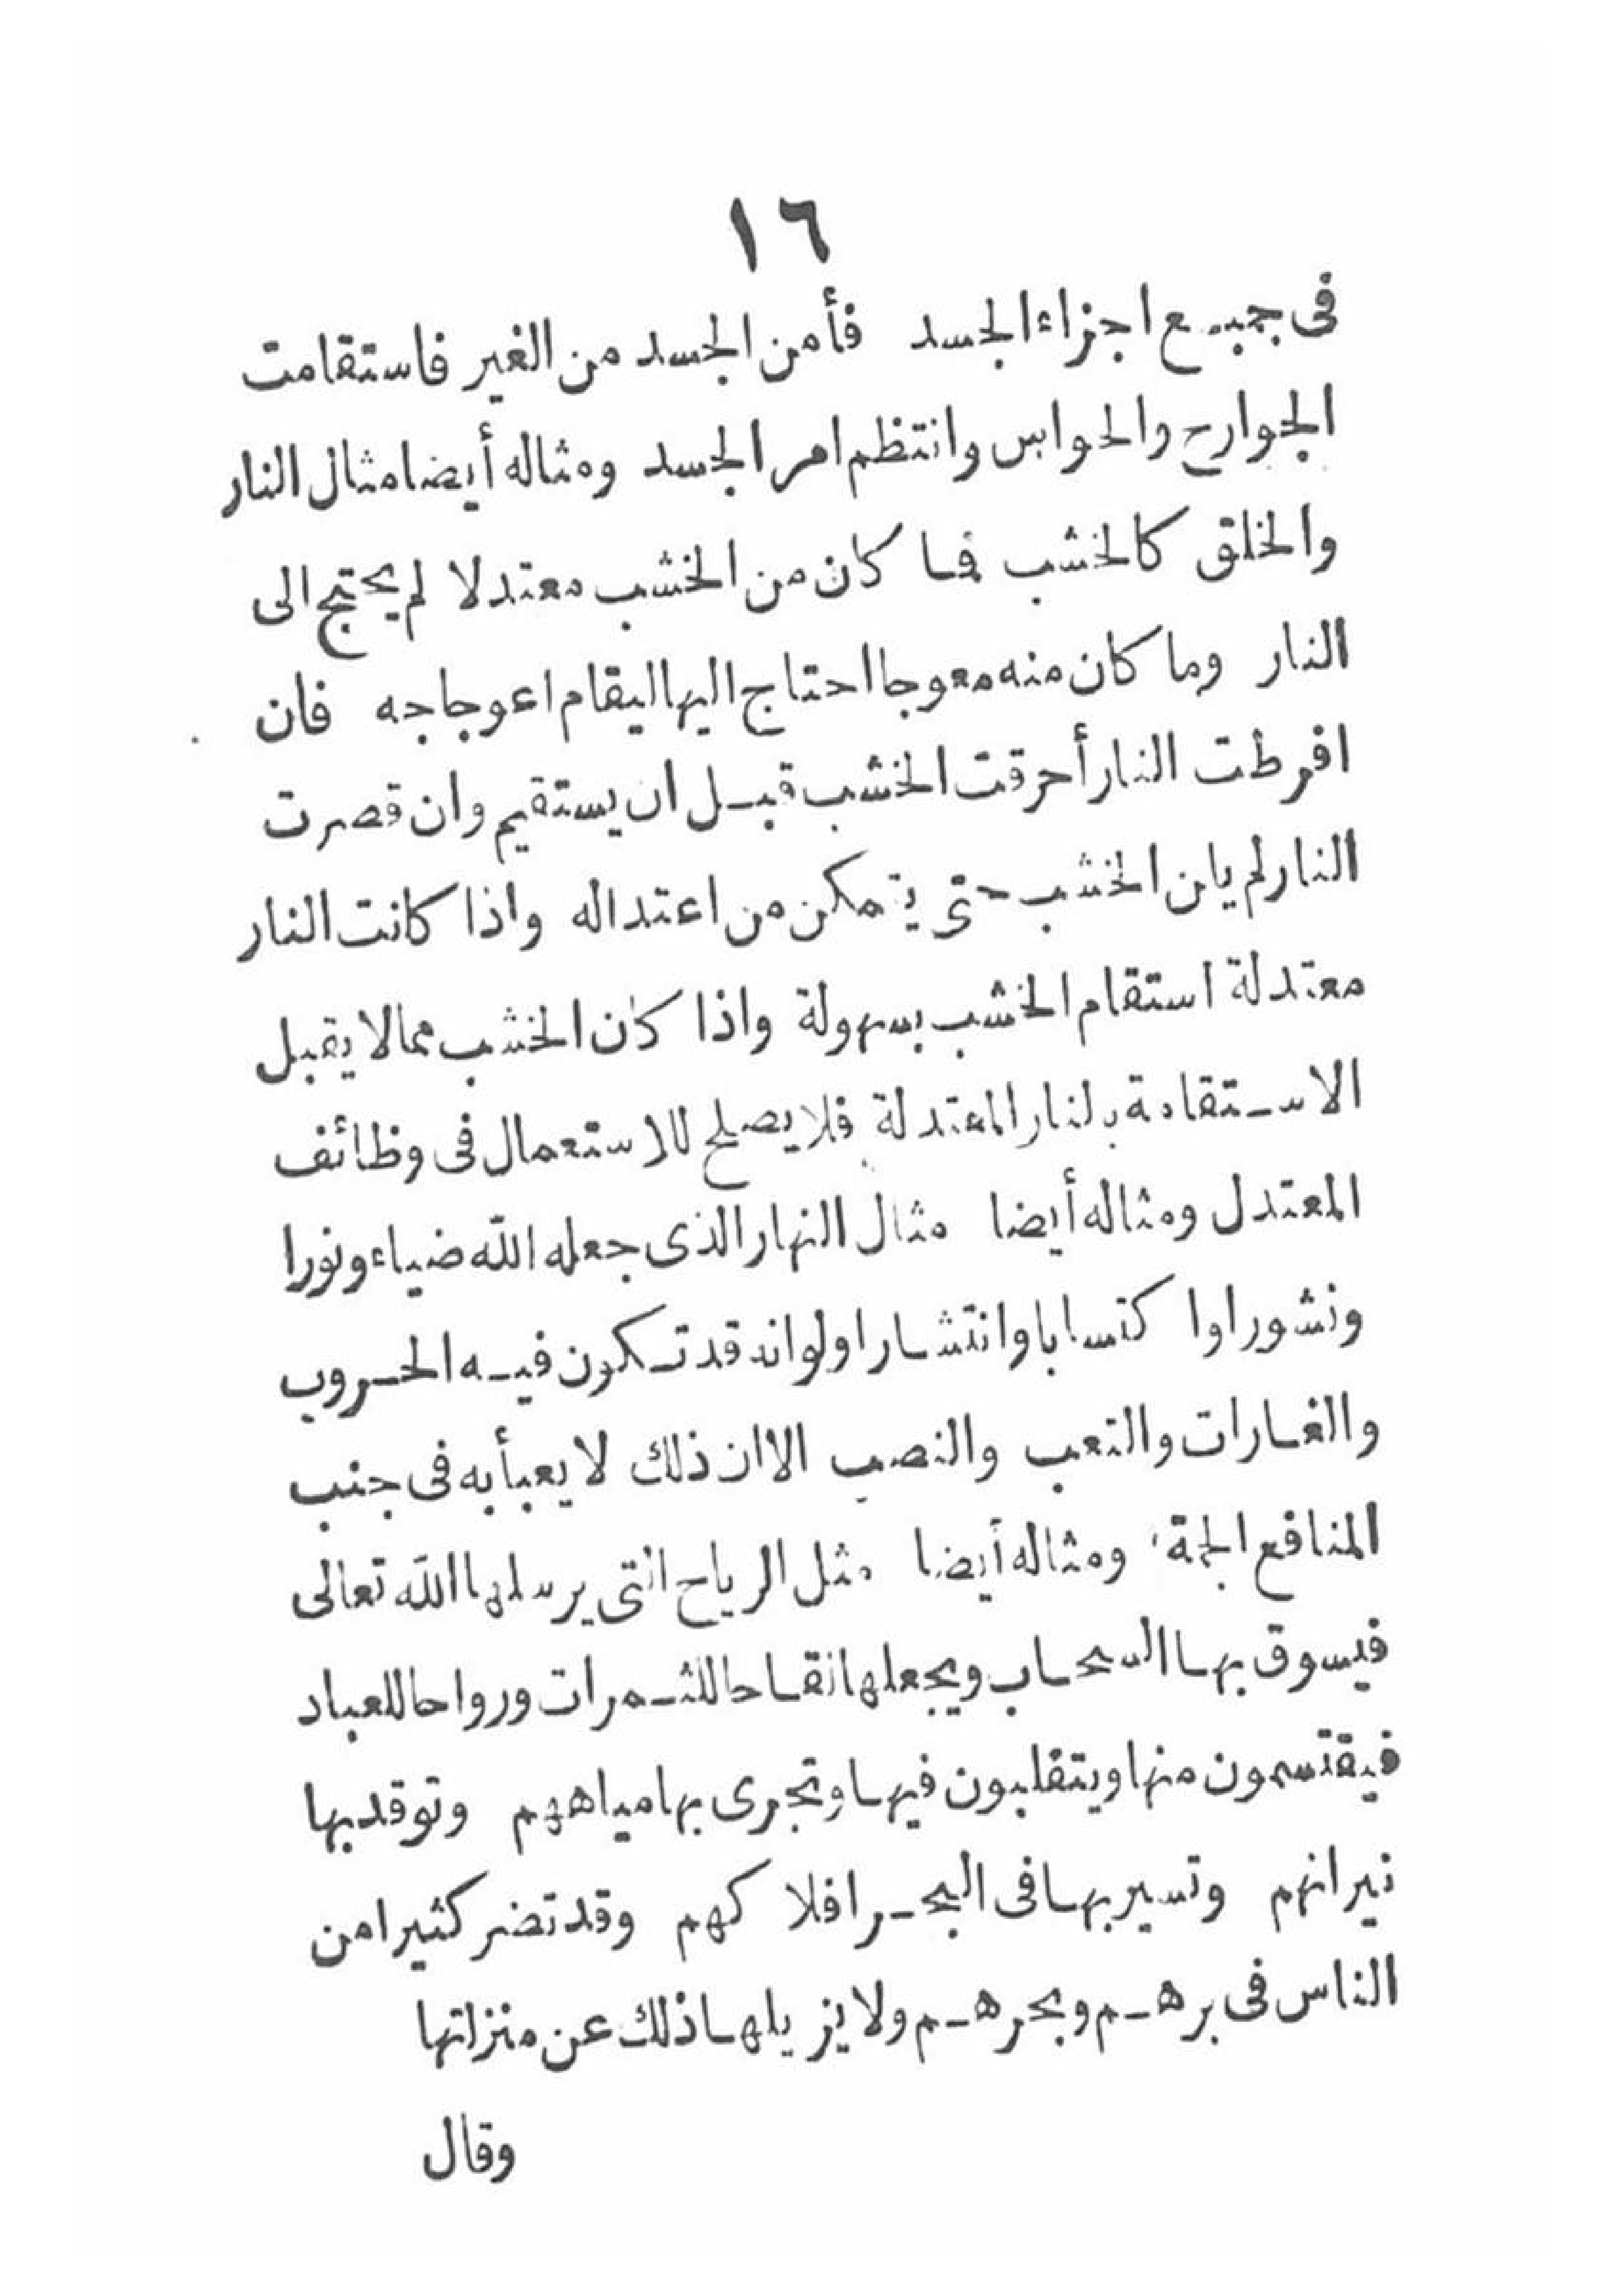 ١٦
فى جميع اجزاء الجسد فأمن الجسد من الغير فاستقامت
الجوارح والحواس وانتظم امر الجسد ومثاله أيضا مثال النار
والخلق كالخشب فما كان من الخشب معتدلا لم يحتج الى
النار وما كان منه معوجا احتاج اليها ليقام اعوجاجه فان
افرطت النار أحرقت الخشب قبل ان يستقيم وان قصرت
النار لم يلن الخشب حتى يتمكن من اعتداله واذا كانت النار
معتدلة استقام الخشب بسهولة واذا كان الخشب مما لا يقبل
الاستقامة بالنار المعتدلة فلا يصلح للاستعمال فى وظائف
المعتدل ومثاله أيضا مثال النهار الذى جعله الله ضياء ونورا
ونشورا واكتسابا وانتشارا ولو انه قد تكون فيه الحروب
والغارات والتعب والنصب الا ان ذلك لا يعبأ به فى جنب
المنافع الجمة ومثاله أيضا مثل الرياح التى يرسلها الله تعالى
فيسوق بها السحاب ويجعلها لقاحا للثمرات ورواحا للعباد
فيقتسمون منها ويتقلبون فيها وتجرى بها مياههم وتوقد بها
نيرانهم وتسير بها فى البحر افلاكهم وقد تضر كثيرا من
الناس فى برهم وبحرهم ولا يزيلها ذلك عن منزلتها
وقال